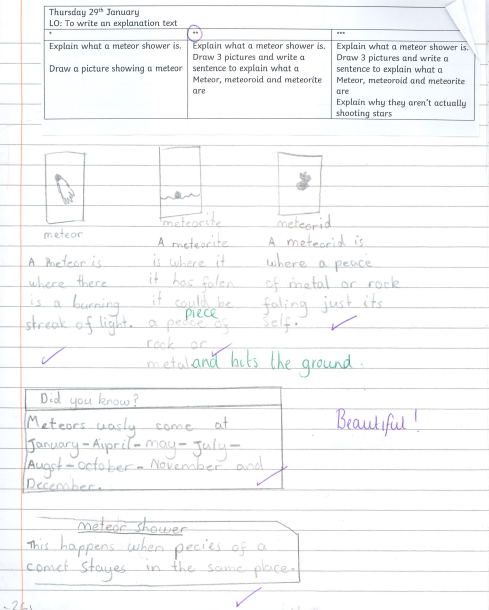 Thursday 29th January
LO: To write an explanation text
*
**
***
Explain what a meteor shower is.
Draw a picture showing a meteor
Explain what a meteor shower is.
Draw 3 pictures and write a
sentence to explain what a
Meteor, meteoroid and meteorite
are
Explain what a meteor shower is.
Draw 3 pictures and write a
sentence to explain what a
Meteor, meteoroid and meteorite
are
Explain why they aren't actually
shooting stars
meteor
A meteor is
where there
is a burning
streak of light.
meteorite
A meteorite
is where it
it has falen
it could be
piece
a peace of
rock or
metal and hits the ground.
meteorid
A meteorid is
where a peace
of metal or rock
faling just its
self.
Did you know?
Meteors uasly come at
January-Aipril-may-July-
Augst-october-November and
December.
Beautiful!
meteor shower
This happens when pecies of a
comet stayes in the same place.